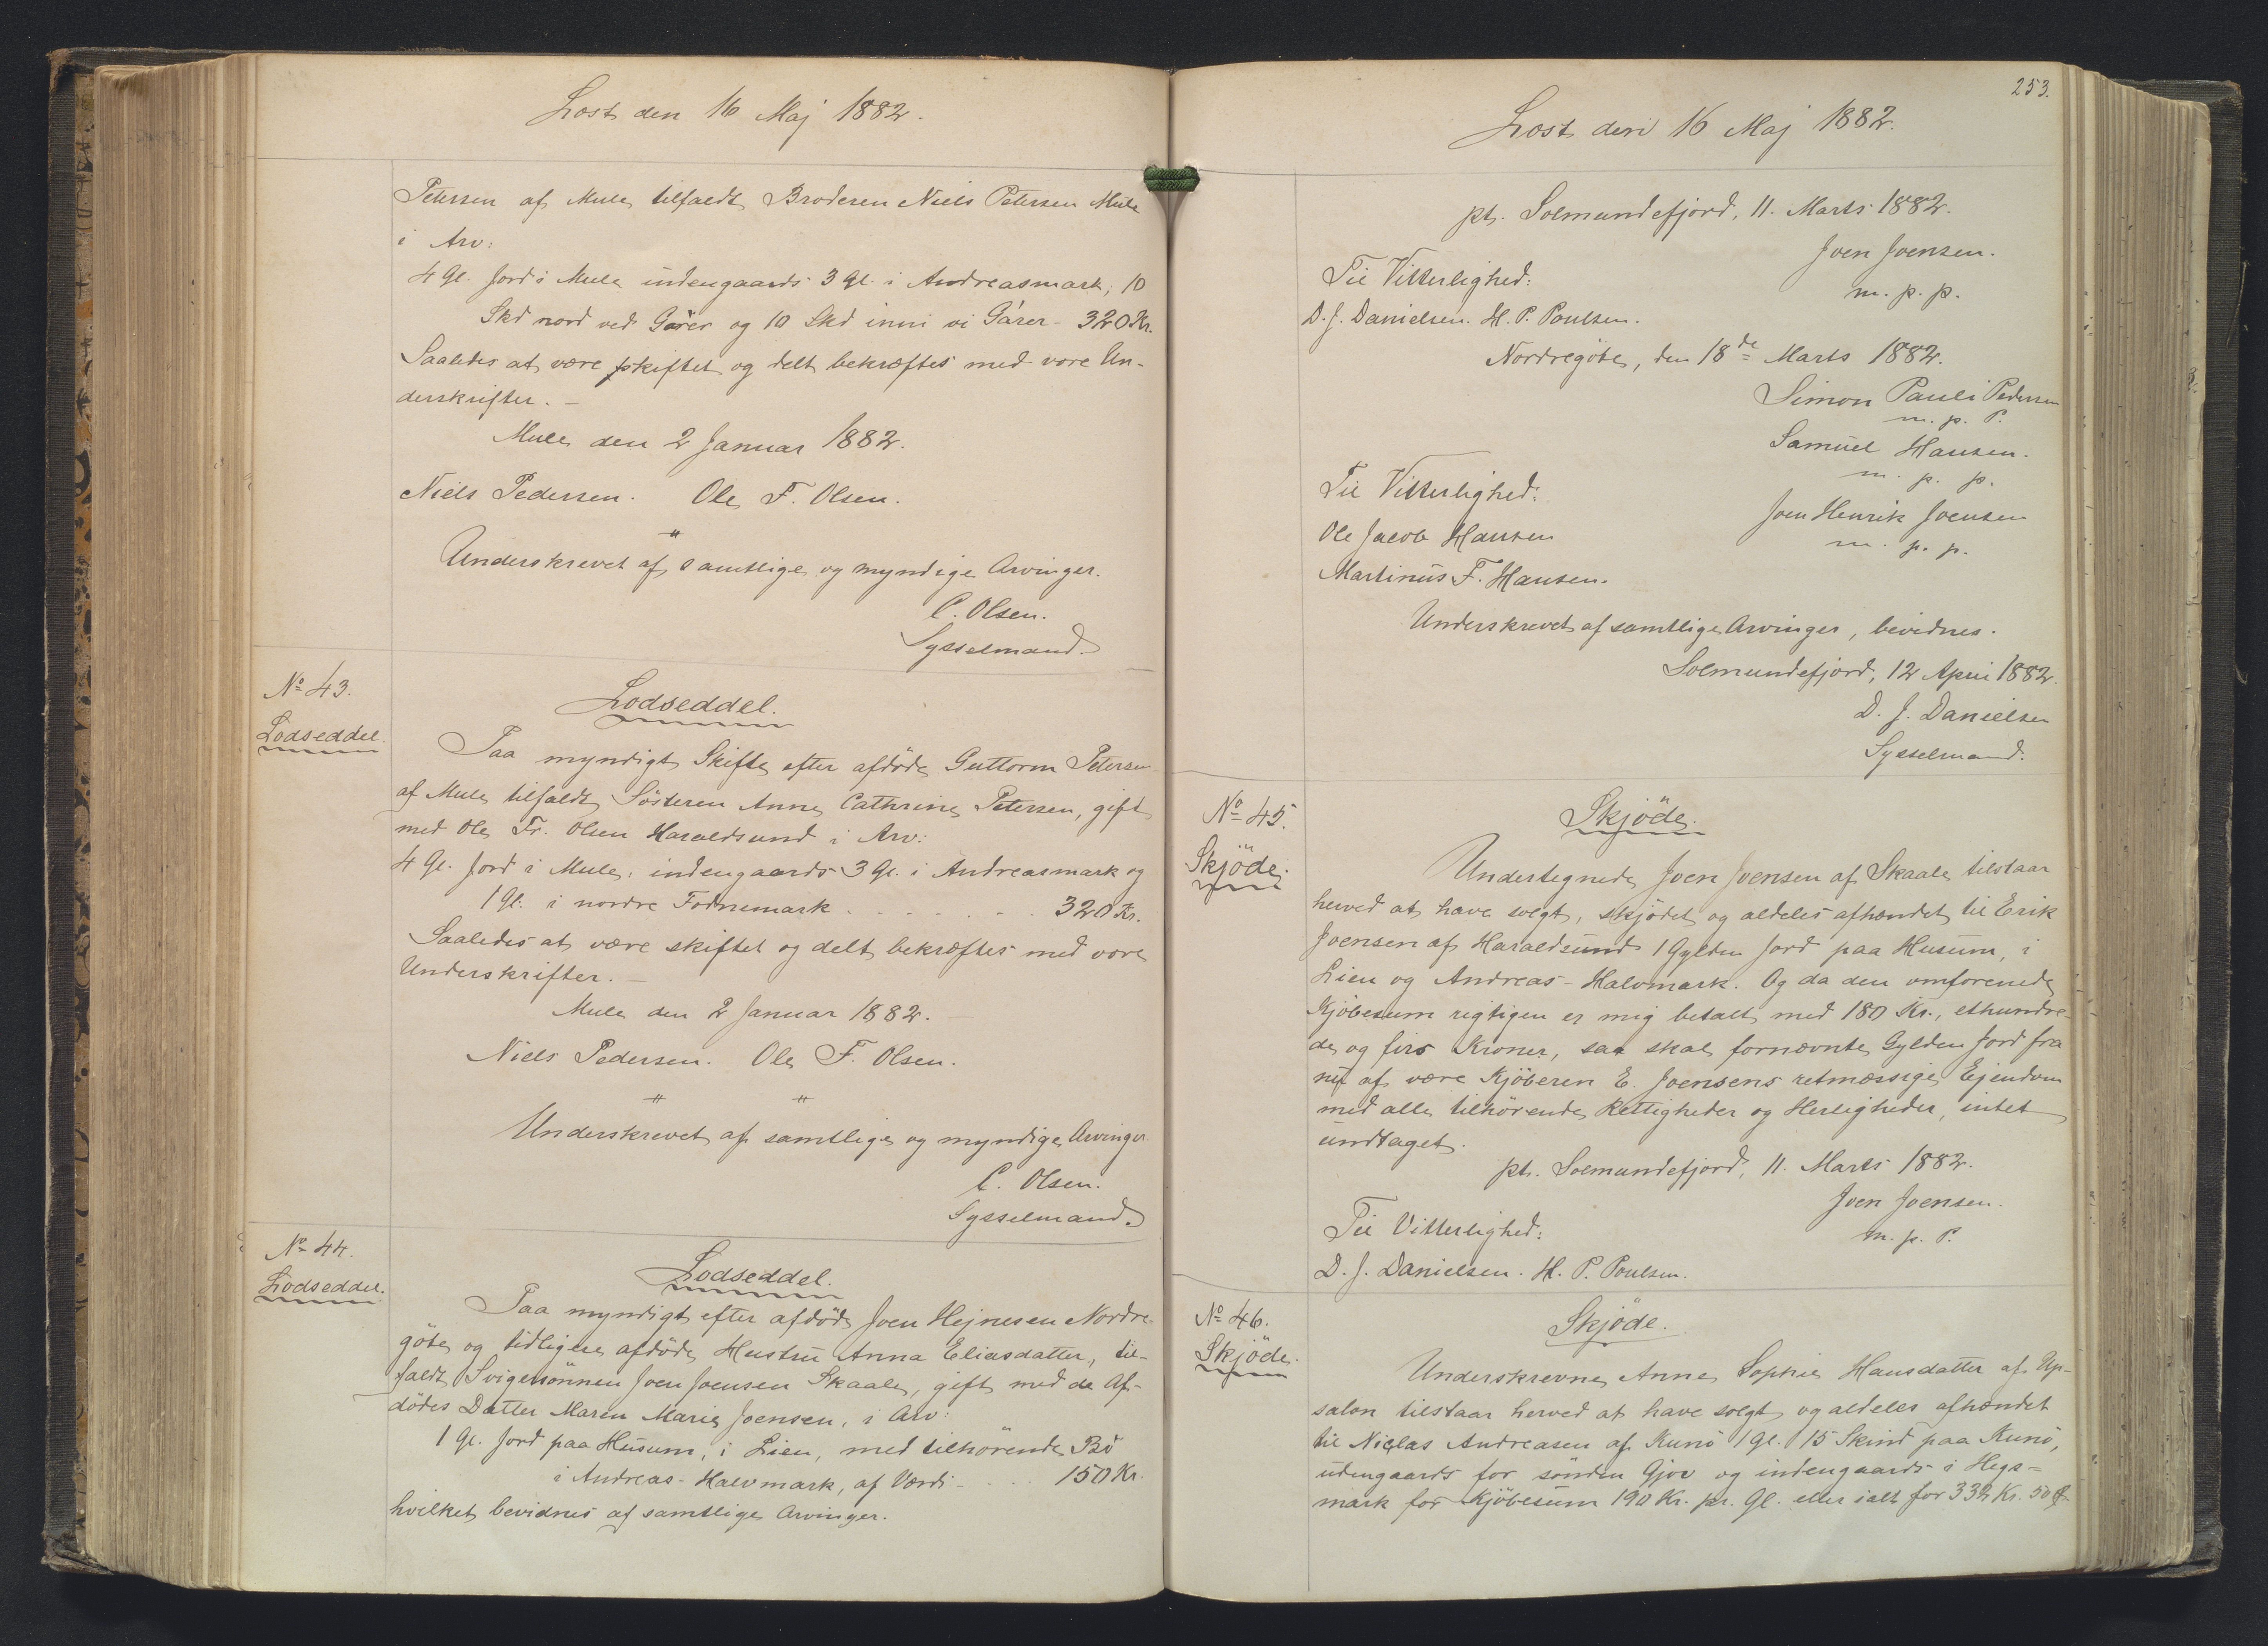 Læst den 16 Maj 1882.
Petersen af Mule tilfaldt Broderen Niels Petersen Mule
i Arv:
4 Gl. Jord i Mule indengaards 3 Gl. i Andreasmark, 10
Skd nord ved Gárer og 10 Skd inni vi Gárer - 320 Kr.
Saaledes at være skiftet og delt bekræftes med vore Un-
derskrifter. -
Mule den 2 Januar 1882.
Niels Pedersen. Ole F. Olsen.
"
Underskrevet af samtlige og myndige Arvinger.
C. Olsen.
Sysselmand.
No 43.
Lodseddel.
Lodseddel.
Paa myndigt Skifte efter afdöde Guttorm Petersen
af Mule tilfaldt Sösteren Anne Cathrine Petersen, gift
med Ole Fr. Olsen Haraldsund i Arv:
4 Gl. Jord i Mule, indengaards 3 Gl. i Andreasmark og
1 Gl. i nordre Fodnemark . . . . . . . 320 Kr.
Saaledes at være skiftet og delt bekræftes med vore
Underskrifter. -
Mule den 2 Januar 1882. -
Niels Pedersen. Ole F. Olsen.
" "
Underskrevet af samtlige og myndige Arvinger
C. Olsen.
Sysselmand.
No 44.
Lodseddel.
Lodseddel.
Paa myndigt efter afdöde Joen Hejnesen Nordre-
göte og tidligere afdöde Hustru Anna Eliasdatter, til-
faldt Svigersönnen Joen Joensen Skaale, gift med de Af-
dödes Datter Maren Marie Joensen, i Arv:
1 Gl. Jord paa Husum, i Lien, med tilhörende Bö
i Andreas-Halvmark, af Værdi - . . . 150 Kr.
hvilket bevidnes af samtlige Arvinger.
253.
Læst den 16 Maj 1882.
pt. Solmundefjord, 11. Marts 1882.
Joen Joensen.
m. p. p.
Til Vitterlighed:
D. J. Danielsen. H. P. Poulsen.
Nordregöte, den 18de Marts 1882.
Simon Pauli Pedersen
m. p. P.
Samuel Hansen.
m. p. p.
Til Vitterlighed:
Joen Henrik Joensen
m. p. p.
Ole Jacob Hansen
Martinus F. Hansen.
Underskrevet af samtlige Arvinger, bevidnes.
Solmundefjord, 12 April 1882.
D. J. Danielsen
Sysselmand.
No 45.
Skjöde.
Skjöde.
Undertegnede Joen Joensen af Skaale tilstaar
herved at have solgt, skjödet og aldeles afhændet til Erik
Joensen af Haraldsund 1 Gylden Jord paa Husum, i
Lien og Andreas-Halvmark. Og da den omforenede
Kjöbesum rigtigen er mig betalt med 180 Kr., ethundre-
de og firs Kroner, saa skal fornævnte Gylden Jord fra
nu af være Kjöberen E. Joensens retmæssige Ejendom
med alle tilhörende Rettigheder og Herligheder, intet
undtaget.
pt. Solmundefjord, 11. Marts 1882.
Joen Joensen.
m. p. P.
Til Vitterlighed:
D. J. Danielsen. H. P. Poulsen.
No 46.
Skjöde.
Skjöde.
Underskrevne Anne Sophie Hansdatter af Up-
salon tilstaar herved at have solgt og aldeles afhændet
til Niclas Andreasen af Kunö 1 Gl. 15 Skind paa Kunö,
udengaards for sönden Gjov og indengaards i Hegs-
mark for Kjöbesum 190 Kr. pr. Gl. eller ialt for 332 Kr. 50 Ø